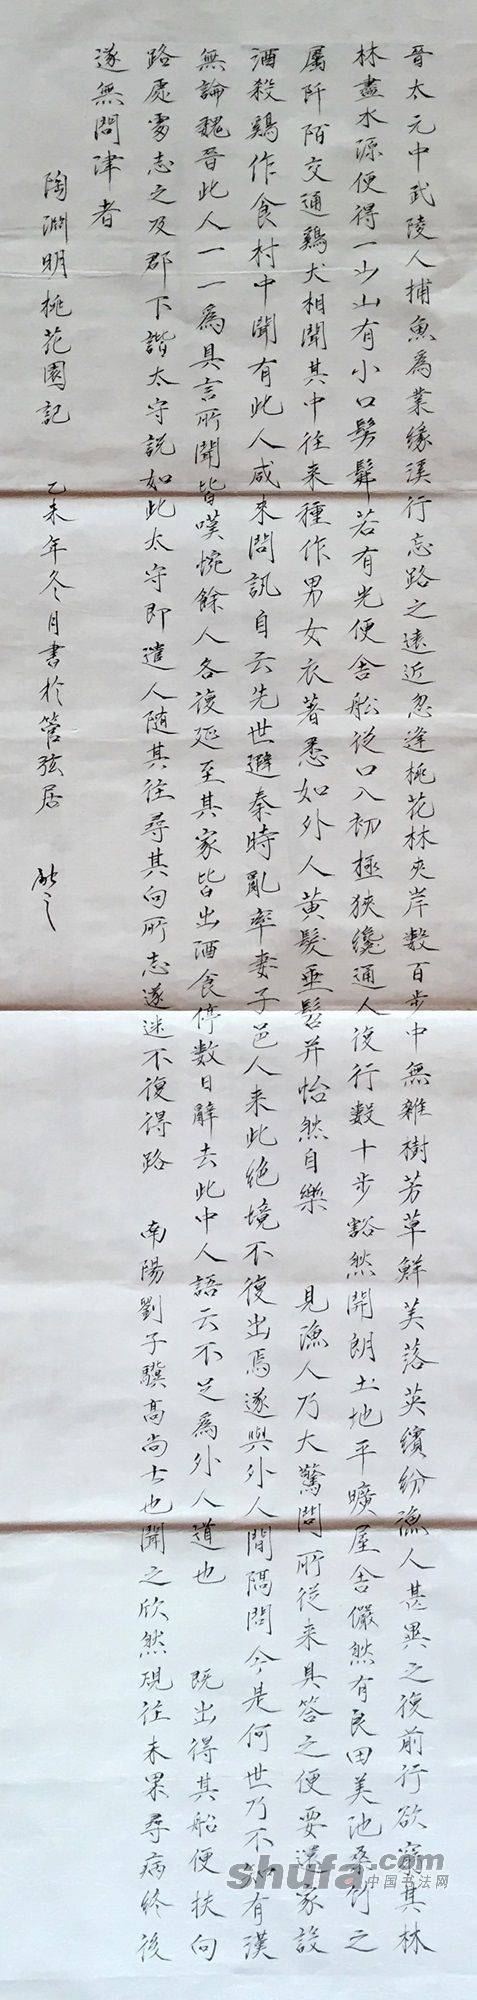 晉太元中武陵人捕魚爲業緣溪行忘路之遠近忽逢桃花林夾岸數百步中無雜樹芳草鮮美落英繽紛漁人甚異之復前行欲窮其林
林盡水源便得一山山有小口髣髴若有光便舍船從口入初極狹纔通人復行數十步豁然開朗土地平曠屋舍儼然有良田美池桑竹之
屬阡陌交通鷄犬相聞其中往来種作男女衣著悉如外人黃髮垂髫并怡然自樂 見漁人乃大驚問所從来具答之便要還家設
酒殺鷄作食村中聞有此人咸来問訊自云先世避秦時亂率妻子邑人来此絕境不復出焉遂與外人間隔問今是何世乃不知有漢
無論魏晉此人一一爲具言所聞皆嘆惋餘人各復延至其家皆出酒食停數日辭去此中人語云不足爲外人道也 既出得其船便扶向
路處處志之及郡下詣太守説如此太守即遣人隨其往尋其向所志遂迷不復得路 南陽劉子驥高尚士也聞之欣然規往未果尋病終後
遂無問津者
陶淵明桃花園記 乙未年冬月書於管弦居
shufa.com
中国书法网